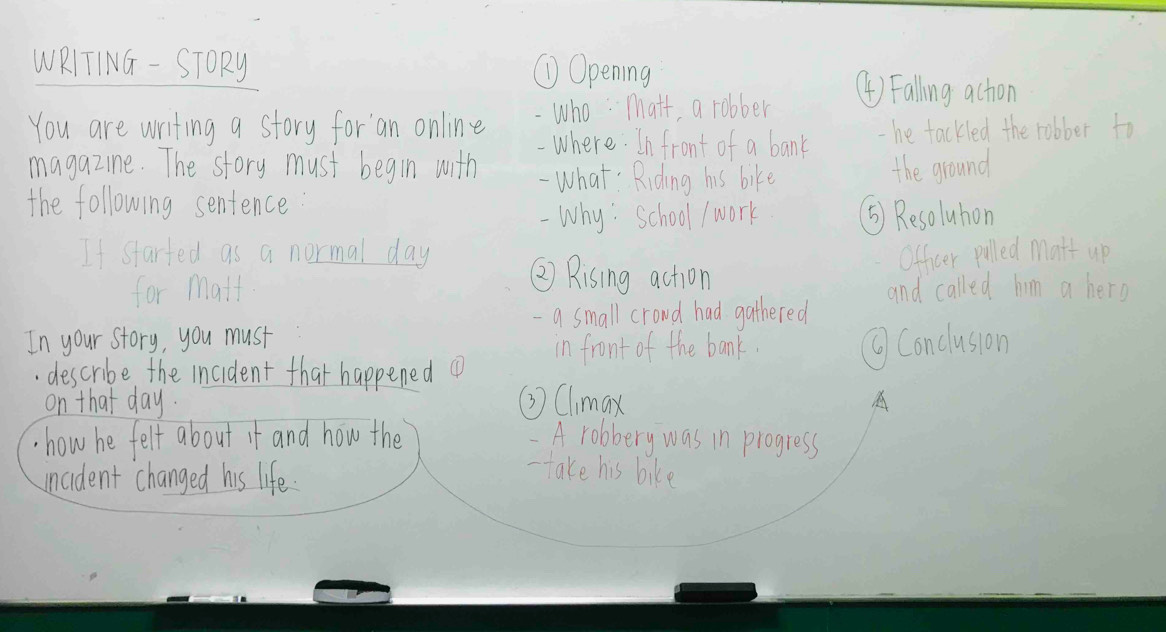 WRITING - STORY
You are writing a story for an online
magazine. The story must begin with
the following sentence :
It started as a normal day
for Matt.
In your story, you must :
• describe the incident that happened ①
on that day.
• how he felt about it and how the
incident changed his life.
① Opening
- Who : Matt, a robber
- Where : In front of a bank
- What : Riding his bike
- Why : School / work
② Rising action
- a small crowd had gathered
in front of the bank.
③ Climax
- A robbery was in progress
- take his bike
④ Falling action
- he tackled the robber to
the ground
⑤ Resolution
- Officer pulled Matt up
and called him a hero
⑥ Conclusion